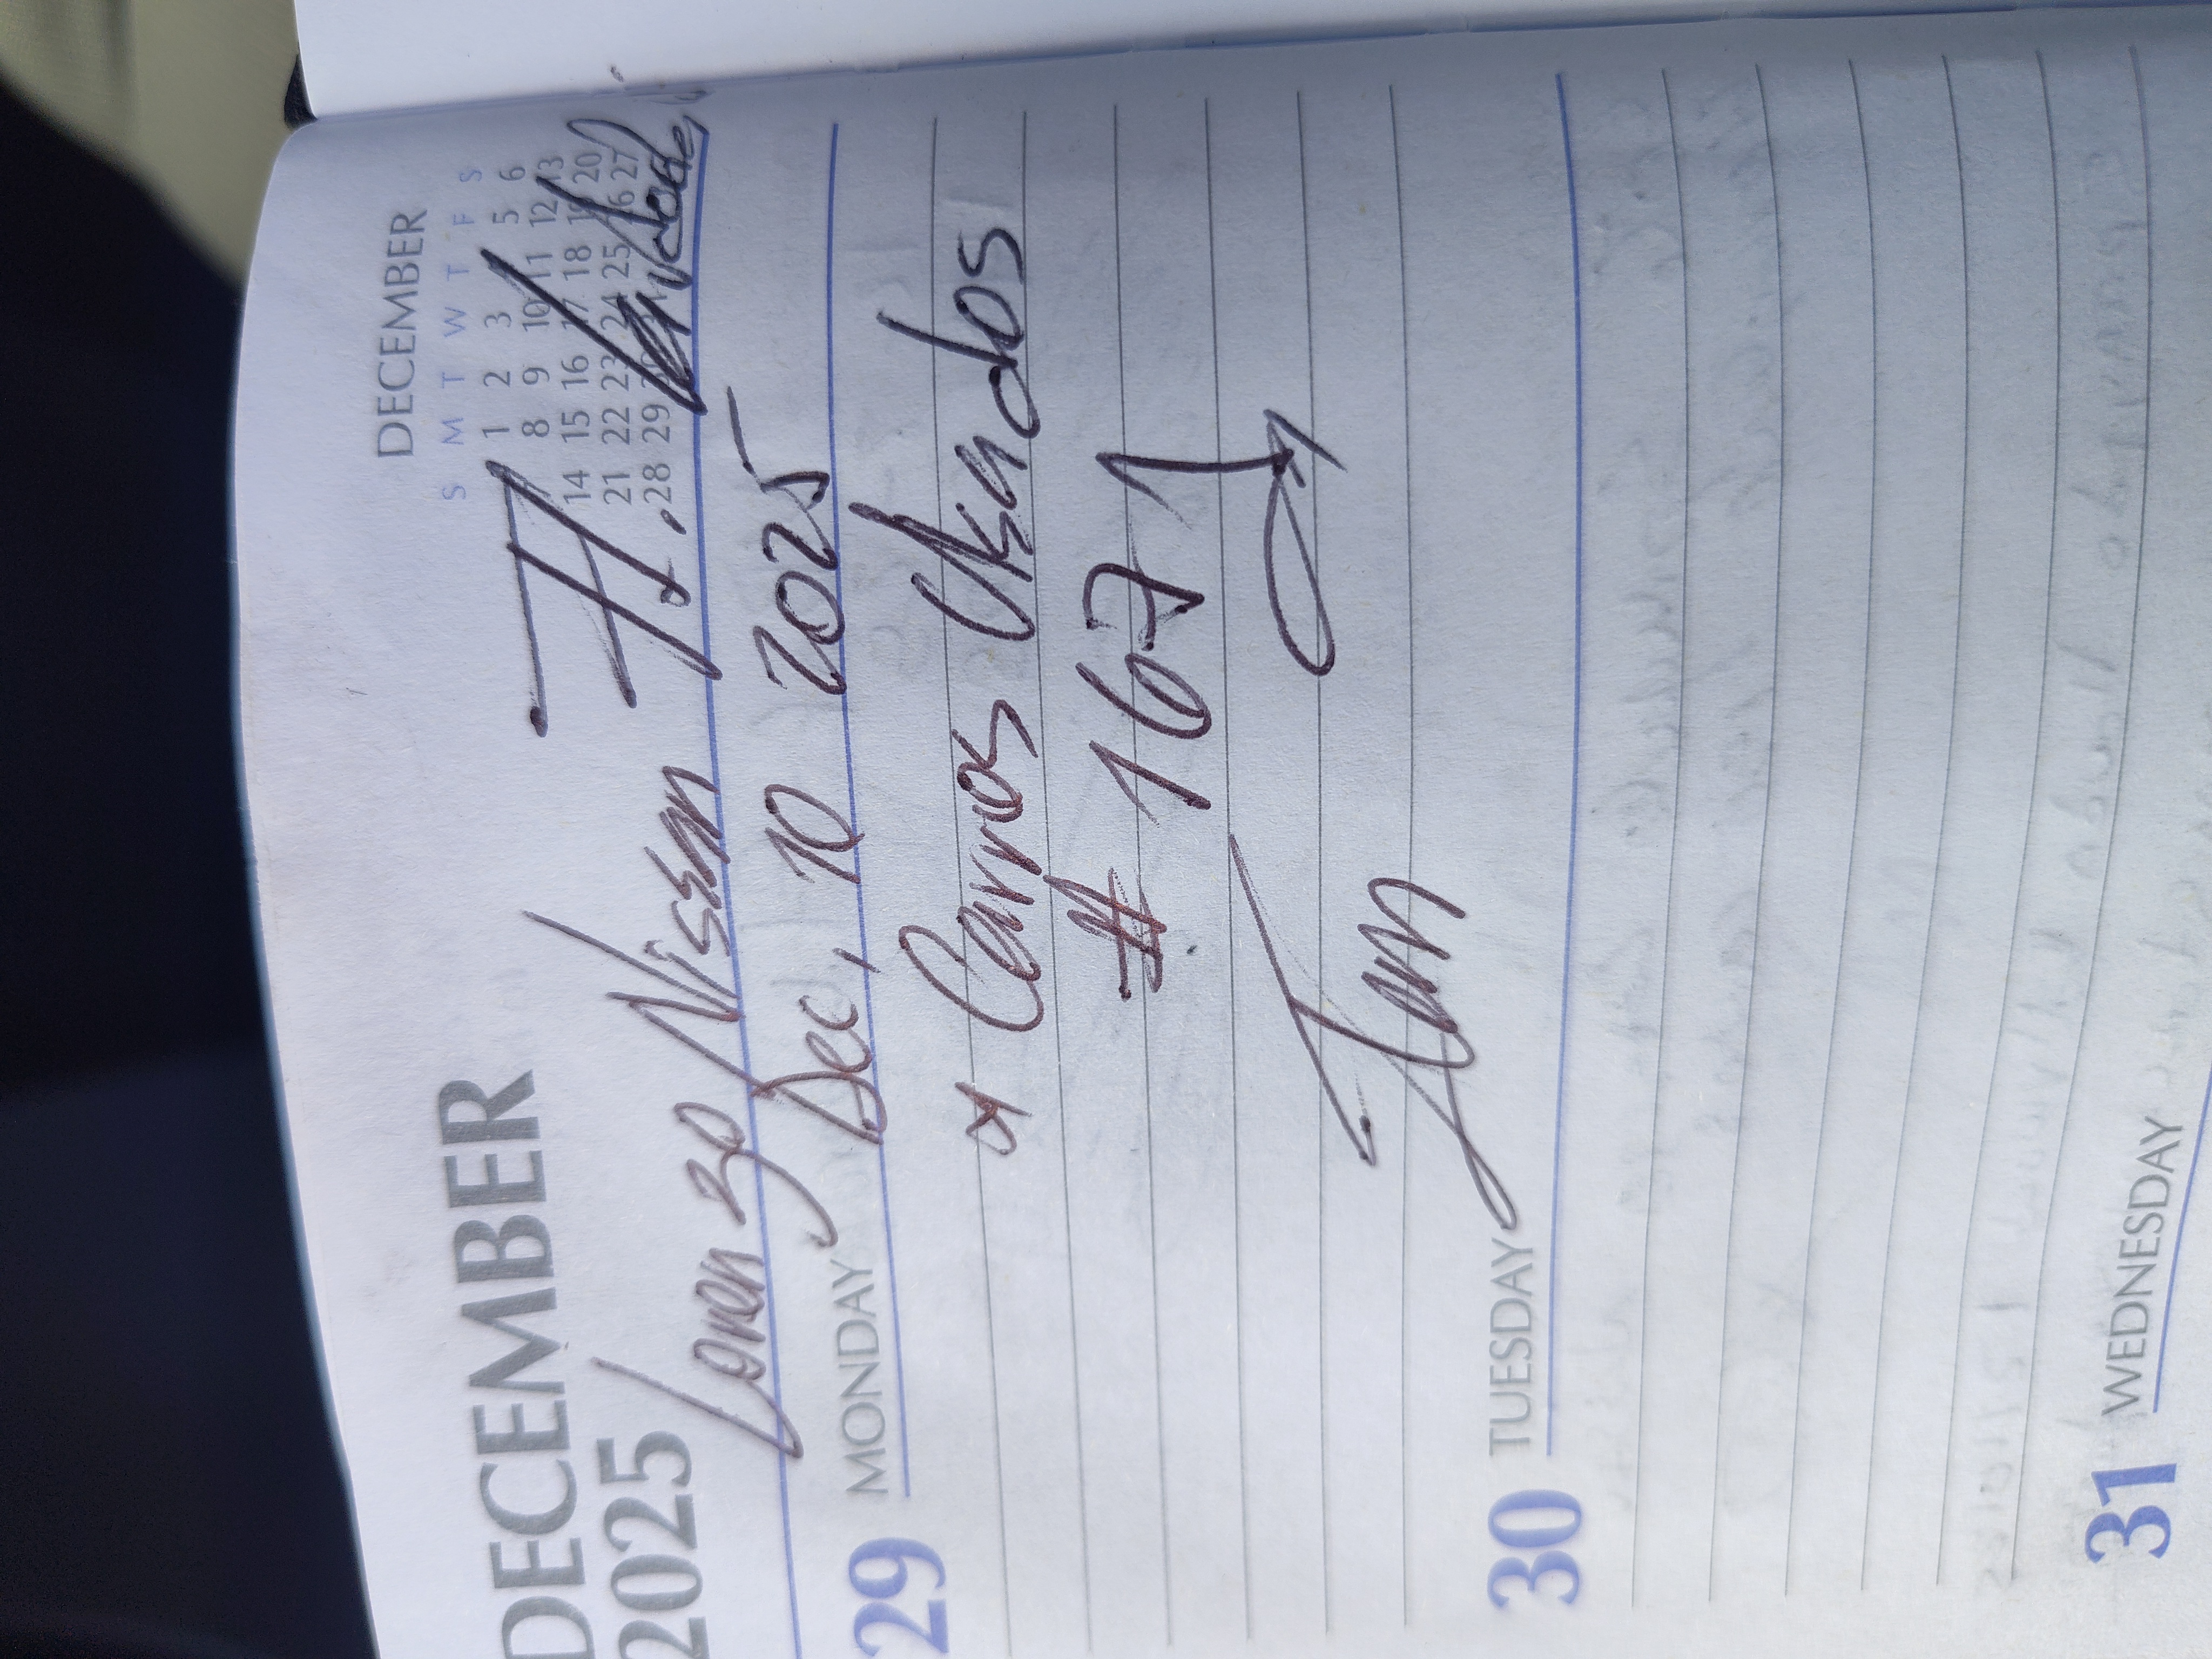 DECEMBER
2025
DECEMBER
S M T W T F S
1 2 3 5 6
8 9 10 11 12 13
14 15 16 17 18 19 20
21 22 23 24 25 26 27
28 29
Lorenzo Nissan H.
Dec, 10 2025
29 MONDAY
Carros Usados
# 1671
30 TUESDAY
31 WEDNESDAY